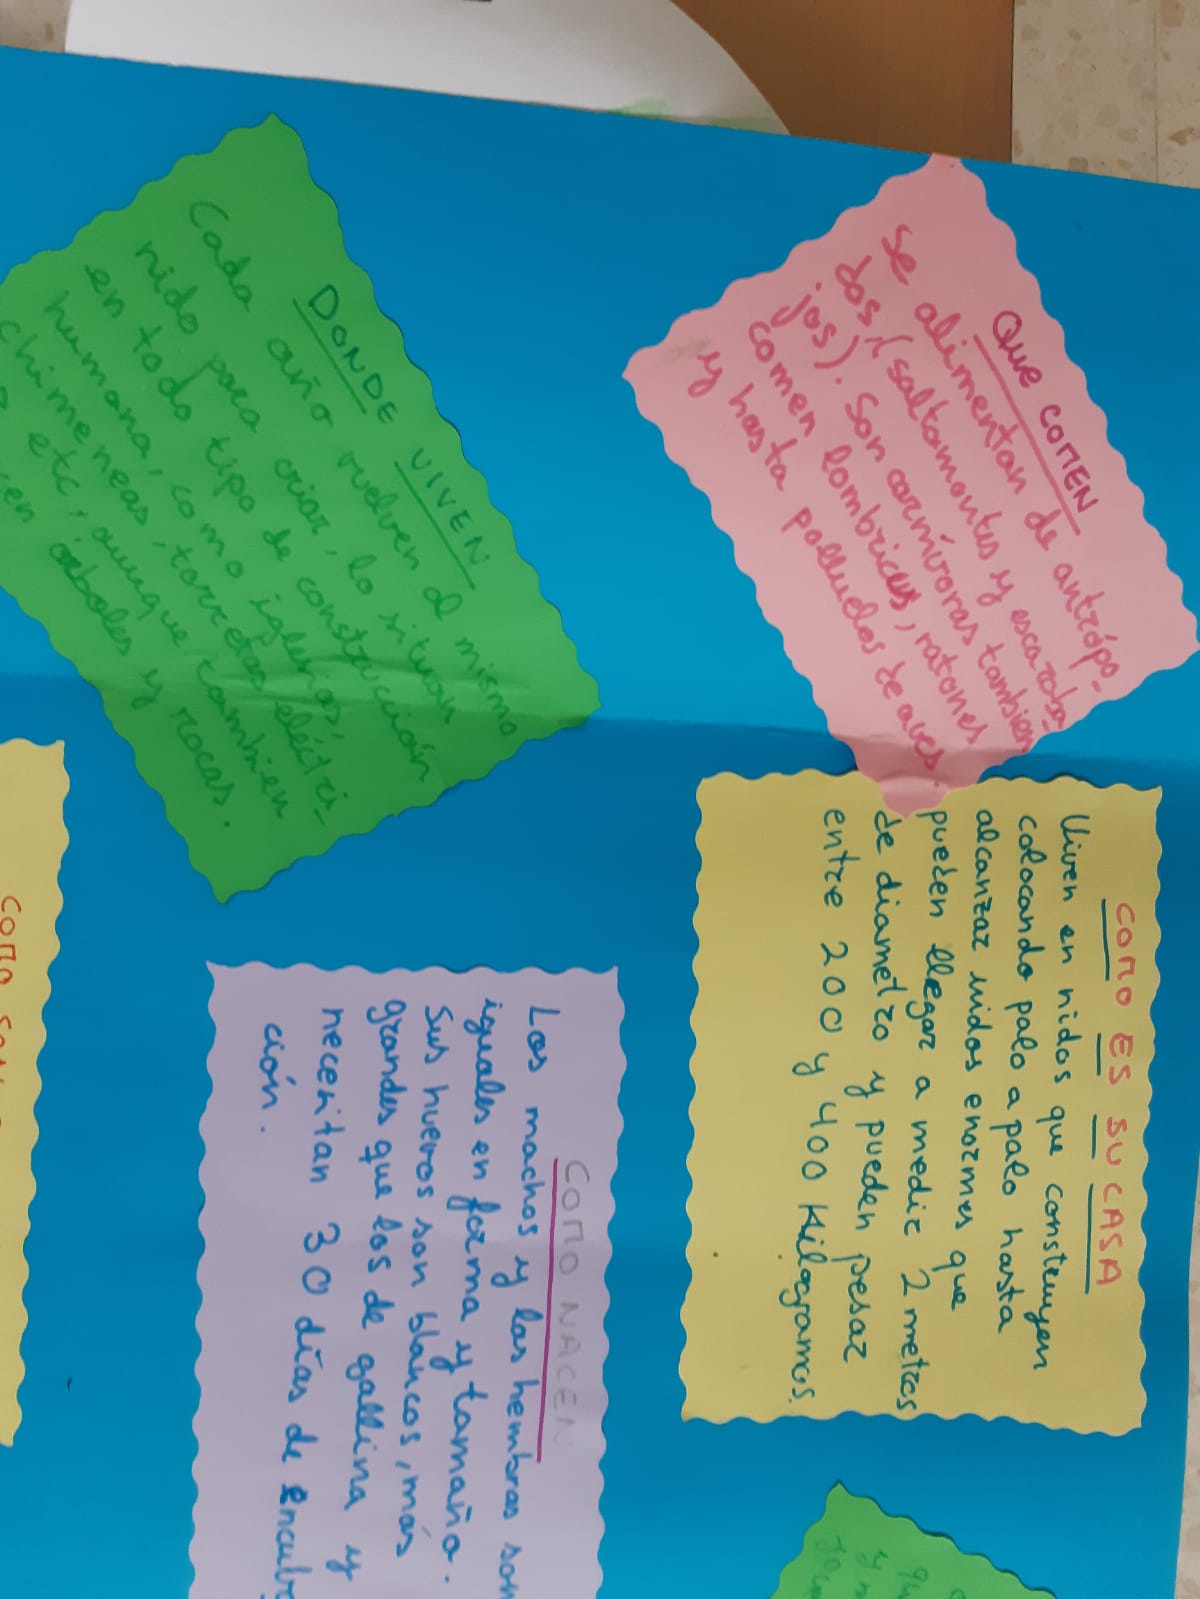 QUE COMEN
Se alimentan de antrópo-
dos, (saltamontes y escaraba
jos). Son carnívoras tambien
comen lombrices, ratones
y hasta polluelos de aves.
COMO ES SU CASA
Viven en nidos que construyen
colocando palo a palo hasta
alcanzar nidos enormes que
pueden llegar a medir 2 metros
de diametro y pueden pesar
entre 200 y 400 Kilogramos.
DONDE VIVEN
Cada año vuelven al mismo
nido para criar, lo situan
en todo tipo de construcción
humana, como iglesias,
chimeneas, torretas eléctri-
etc, aunque tambien
en árboles y rocas.
COMO NACEN
Los machos y las hembras son
iguales en forma y tamaño.
Sus huevos son blancos, más
grandes que los de gallina y
necesitan 30 días de encuba
ción.
COMO